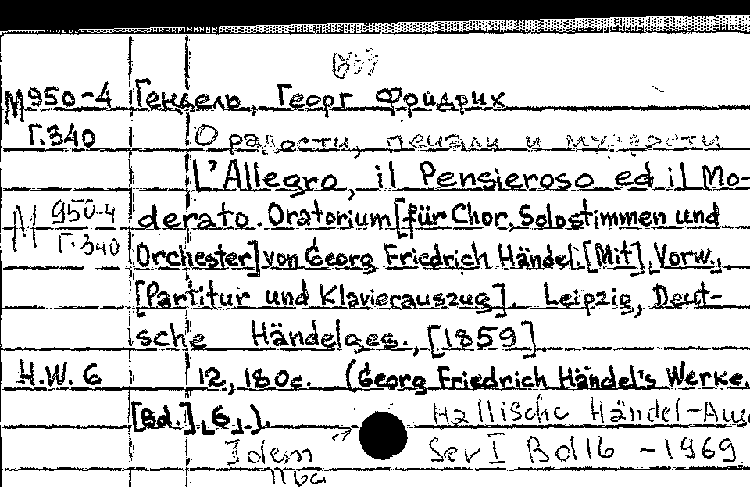 М950-4 Гендель, Георг Фридрих
Г.340 О радости, печали и мудрости
L'Allegro, il Pensieroso ed il Mo-
М 950-4 derato. Oratorium [für Chor, Solostimmen und
Г.340 Orchester] von Georg Friedrich Händel. [Mit] Vorw.,
[Partitur und Klavierauszug]. Leipzig, Deut-
sche Händelges., [1859]
H.W. 6 12, 180 с. (Georg Friedrich Händel's Werke.
[Bd.] 6.).
Hallische Händel-Aus
Idem Ser I Bd 16 - 1969